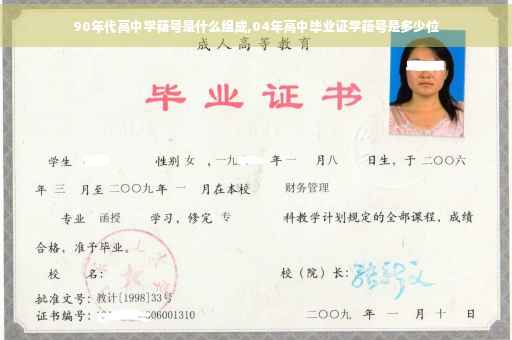 90年代高中学藉号是什么组成,04年高中毕业证学藉号是多少位
成人高等教育
毕业证书
学生 性别 女 ，一九 年 一 月八 日生，于 二〇〇六
年 三 月至 二〇〇九 年 一 月在本校 财务管理
专业 函授 学习，修完 专 科教学计划规定的全部课程，成绩
合格，准予毕业。
校 名： 校（院）长：
批准文号：教计[1998]33号
证书编号： 06001310 二〇〇九 年 一 月 十 日